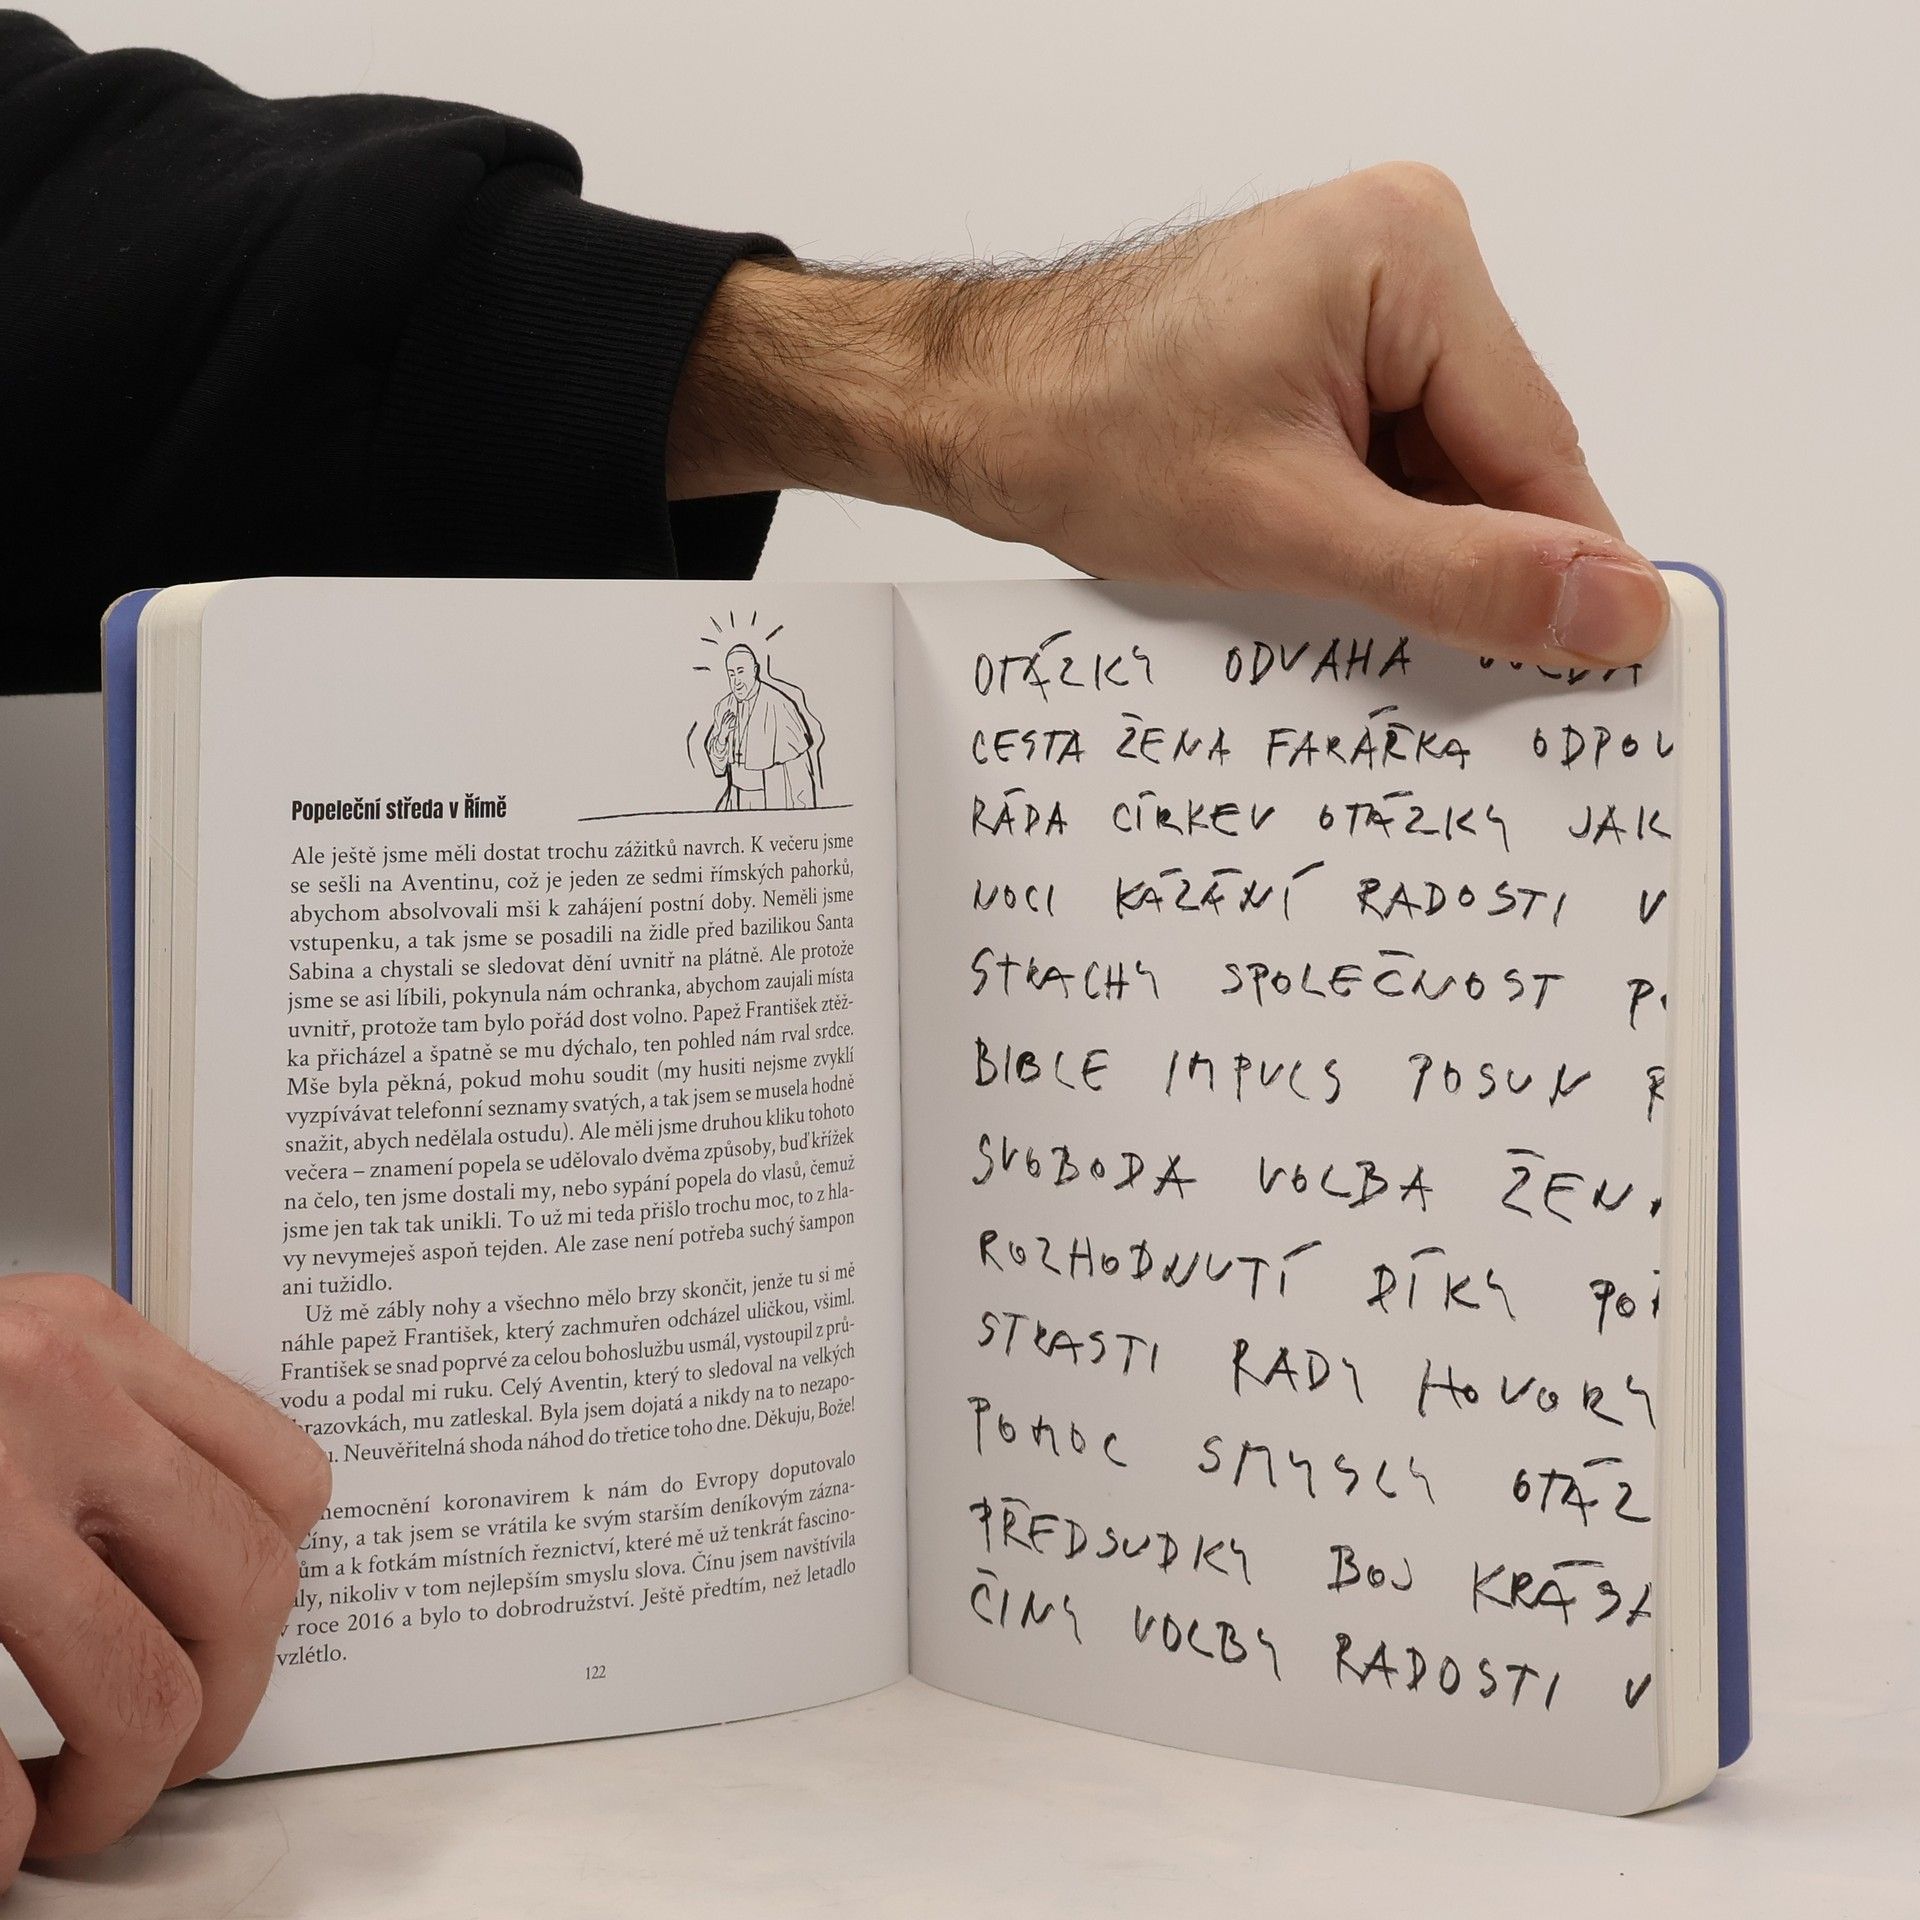 Popeleční středa v Římě
Ale ještě jsme měli dostat trochu zážitků navrch. K večeru jsme
se sešli na Aventinu, což je jeden ze sedmi římských pahorků,
abychom absolvovali mši k zahájení postní doby. Neměli jsme
vstupenku, a tak jsme se posadili na židle před bazilikou Santa
Sabina a chystali se sledovat dění uvnitř na plátně. Ale protože
jsme se asi líbili, pokynula nám ochranka, abychom zaujali místa
uvnitř, protože tam bylo pořád dost volno. Papež František ztěž-
ka přicházel a špatně se mu dýchalo, ten pohled nám rval srdce.
Mše byla pěkná, pokud mohu soudit (my husiti nejsme zvyklí
vyzpívávat telefonní seznamy svatých, a tak jsem se musela hodně
snažit, abych nedělala ostudu). Ale měli jsme druhou kliku tohoto
večera – znamení popela se udělovalo dvěma způsoby, buď křížek
na čelo, ten jsme dostali my, nebo sypání popela do vlasů, čemuž
jsme jen tak tak unikli. To už mi teda přišlo trochu moc, to z hla-
vy nevymeješ aspoň tejden. Ale zase není potřeba suchý šampon
ani tužidlo.
Už mě zábly nohy a všechno mělo brzy skončit, jenže tu si mě
náhle papež František, který zachmuřen odcházel uličkou, všiml.
František se snad poprvé za celou bohoslužbu usmál, vystoupil z prů-
vodu a podal mi ruku. Celý Aventin, který to sledoval na velkých
razovkách, mu zatleskal. Byla jsem dojatá a nikdy na to nezapo-
u. Neuvěřitelná shoda náhod do třetice toho dne. Děkuju, Bože!
nemocnění koronavirem k nám do Evropy doputovalo
Číny, a tak jsem se vrátila ke svým starším deníkovým zázna-
ům a k fotkám místních řeznictví, které mě už tenkrát fascino-
aly, nikoliv v tom nejlepším smyslu slova. Čínu jsem navštívila
v roce 2016 a bylo to dobrodružství. Ještě předtím, než letadlo
vzlétlo.
122
OTÁZKY ODVAHA
CESTA ŽENA FARÁŘKA ODPOV
RÁDA CÍRKEV OTÁZKY JAK
NOCI KÁZÁNÍ RADOSTI V
STRACHY SPOLEČNOST P
BIBLE IMPULS POSUN R
SVOBODA VOLBA ŽEN
ROZHODNUTÍ DÍKY POŘ
STRASTI RADY HOVORY
POMOC SMYSLY OTÁZ
PŘEDSUDKY BOJ KRÁSA
ČINY VOLBY RADOSTI V